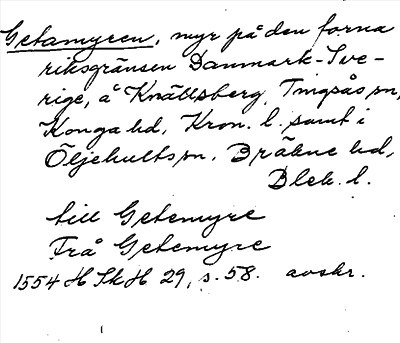 Getamyren, myr på den forna
riksgränsen Danmark-Sve-
rige, å Knällsberg, Tingsås sn,
Konga hd, Kron. l. samt i
Öljehults sn, Bräkne hd,
Blek. l.
till Getemyre
Frå Getemyre
1554 H Sk H 29, s. 58. avskr.